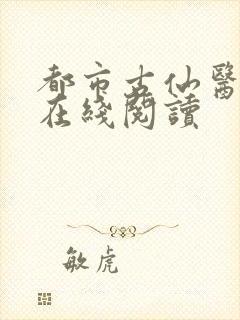 都市古仙醫
在綫閱讀
敏虎